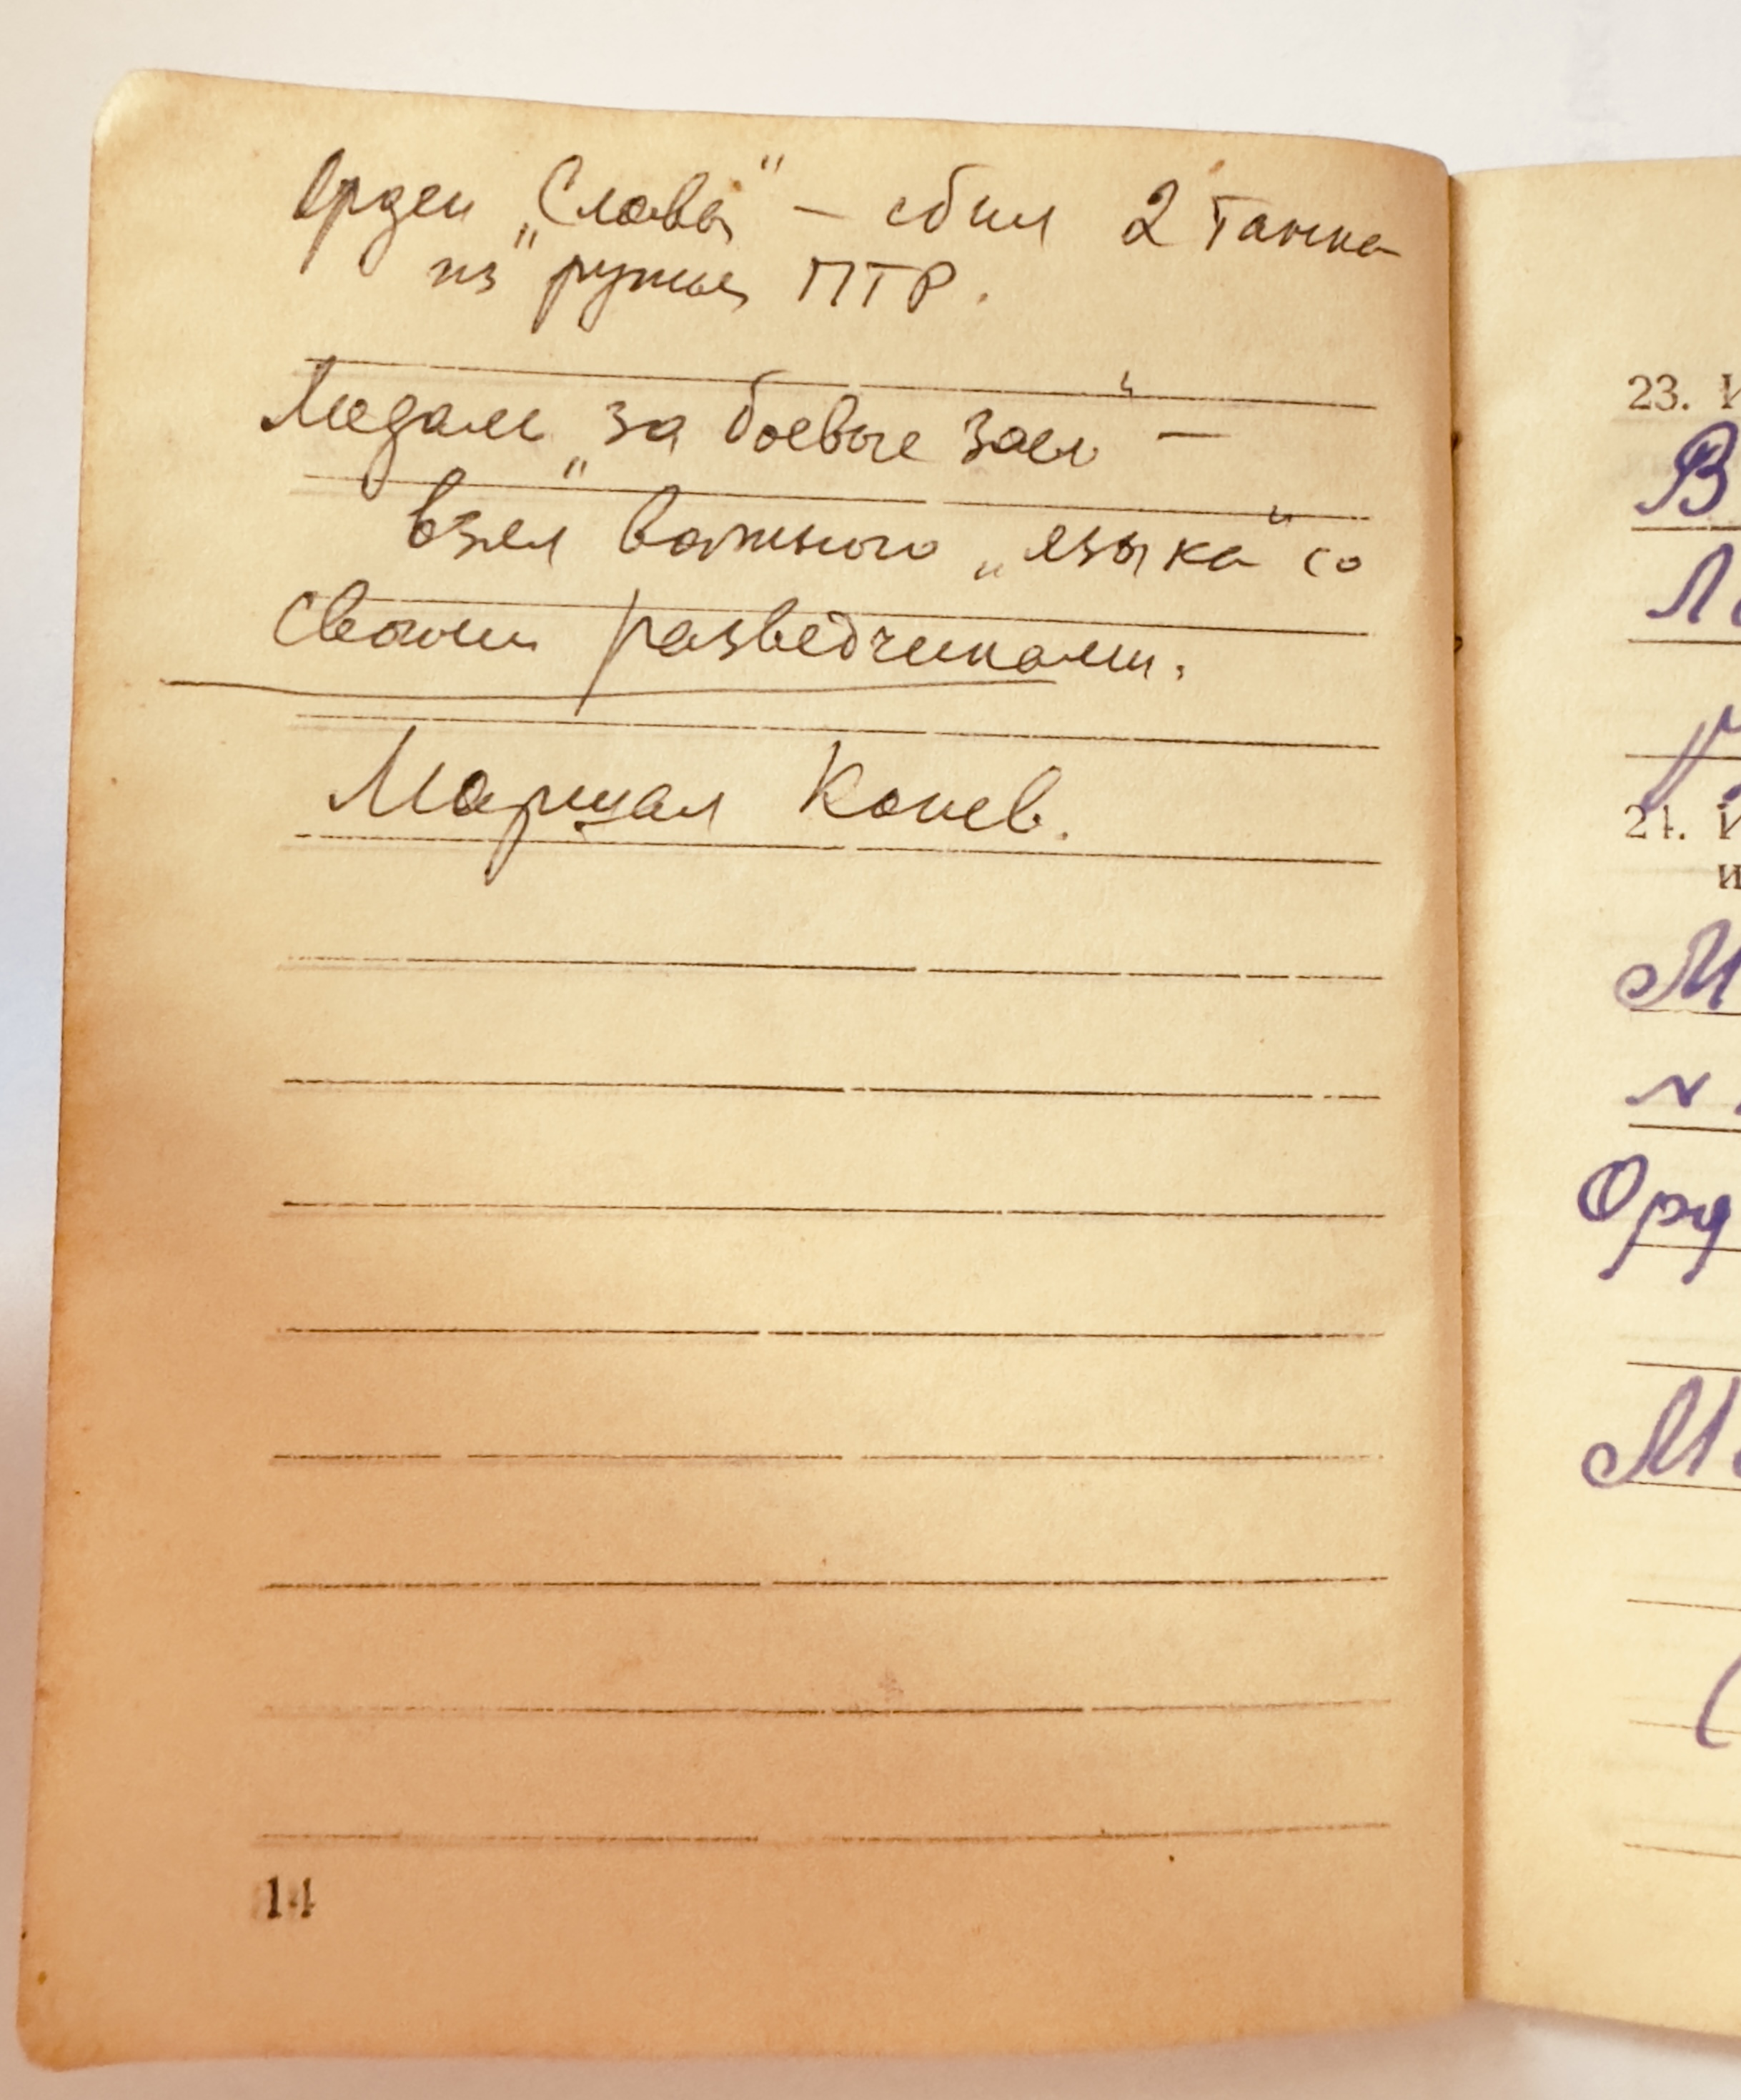 Орден „Слава" – сбил 2 танка
из ружья ПТР.
Медаль „за боевые засл" –
взял важного „языка" со
своими разведчиками.
Маршал Конев.
14
23. И
В
Л
24. И
и
М
N
Орд
М